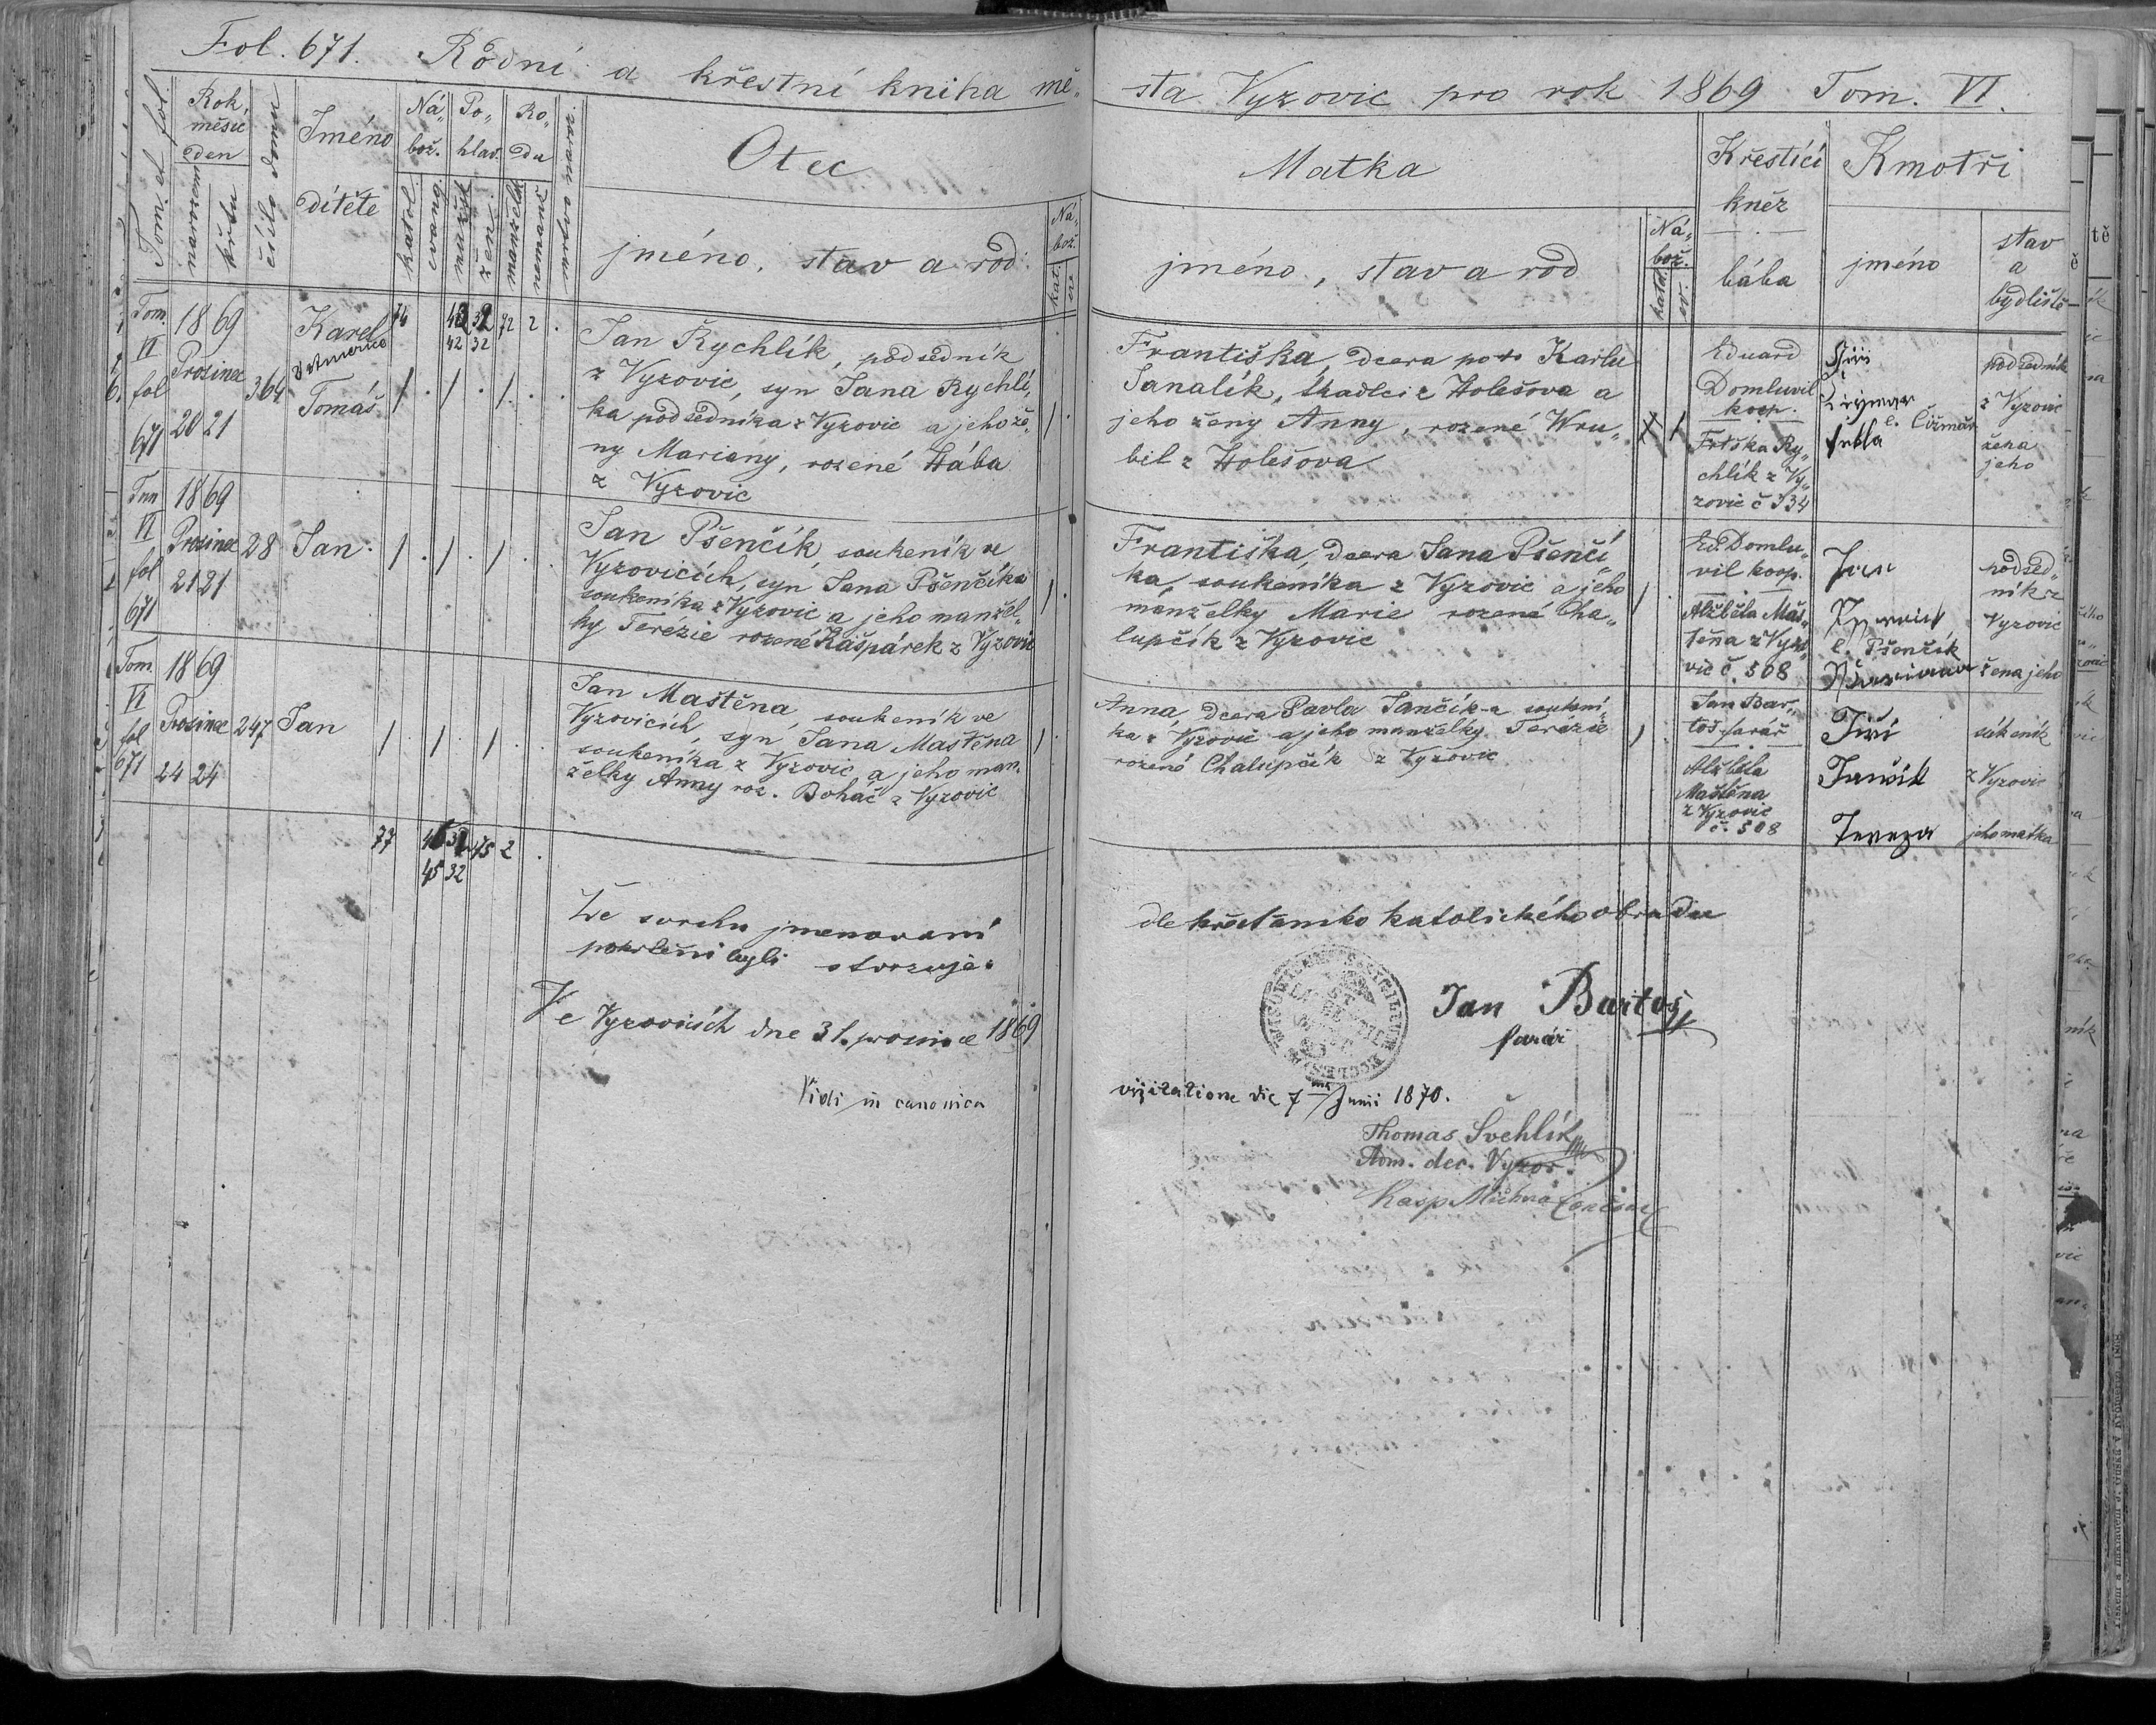 Fol. 671. Rodní a křestní kniha mě„
sta Vyzovic pro rok 1869 Tom. VI.
Tom. et fol
Rok, měsíc den
narození
křtu
číslo domu
Jméno
dítěte
Ná„ bož.
katol.
evang.
Po„ hlav.
mužsk
žen.
Ro„ du
manželsk
nemanž
mrtvo naroz.
Otec
jméno, stav a rod
Ná„ bož.
kat.
ev
Matka
jméno, stav a rod
Ná„ bož.
katol.
ev.
Křestící
kněz
bába
Kmotři
jméno
stav
a
bydliště
Tom.
VI
fol
671
1869
Prosinec
20 21
364
Karel
v Americe
Tomáš
74
42 32
72 2 .
42 32
1 . 1 . 1 . .
Jan Rychlík, podsedník
z Vyzovic, syn Jana Rychlí„
ka podsedníka z Vyzovic a jeho že„
ny Mariany, rozené Hába
z Vyzovic
1 .
Františka, dcera po † Karlu
Janalík, tkadlci z Holešova a
jeho ženy Anny, rozené Wru„
bil z Holešova
1
Eduard
Domluvil
koop.
Frtška Ry„
chlík z Vy„
zovic č 334
Jiří
l. Čižmář
podsedník
z Vyzovic
žena
jeho
Tom
VI
fol
671
1869
Prosinec
21 21
28
Jan
1 . 1 . 1 . .
Jan Pšenčík, soukeník ve
Vyzovicích, syn Jana Pšenčíka
soukeníka z Vyzovic a jeho manžel„
ky Terézie rozené Kašpárek z Vyzovic
1 .
Františka, dcera Jana Pšenčí„
ka, soukeníka z Vyzovic a jeho
manželky Marie rozené Cha„
lupčík z Vyzovic
1 .
Ed. Domlu„
vil koop.
Alžběta Maš„
těna z Vyzo„
vic č. 508
Jan
l. Pšenčík
Mariana
podsed„
ník z
Vyzovic
žena jeho
Tom.
VI
fol
671
1869
Prosinec
24 24
247
Jan
1 . 1 . 1 . .
Jan Maštěna, soukeník ve
Vyzovicích, syn Jana Maštěna
soukeníka z Vyzovic a jeho man„
želky Anny roz. Boháč z Vyzovic
1 .
Anna, dcera Pavla Jančík-a soukení„
ka z Vyzovic a jeho manželky Terézie
rozené Chalupčík z Vyzovic
1 .
Jan Bar„
toš farář
Alžběta
Maštěna
z Vyzovic
č. 508
Jiří
Jančík
Tereza
súkeník
z Vyzovic
jeho matka
77
45 32 75 2 .
45 32
Že svrchu jmenovaní
pokřtěni byli stvrzuje:
dle křesťansko katolického obřadu
Ve Vyzovicích dne 31. prosince 1869
Jan Bartoš
farář
Vidi in canonica
visitatione die 7ma Junii 1870.
Thomas Švehlík
Adm. dec. Vyzov.